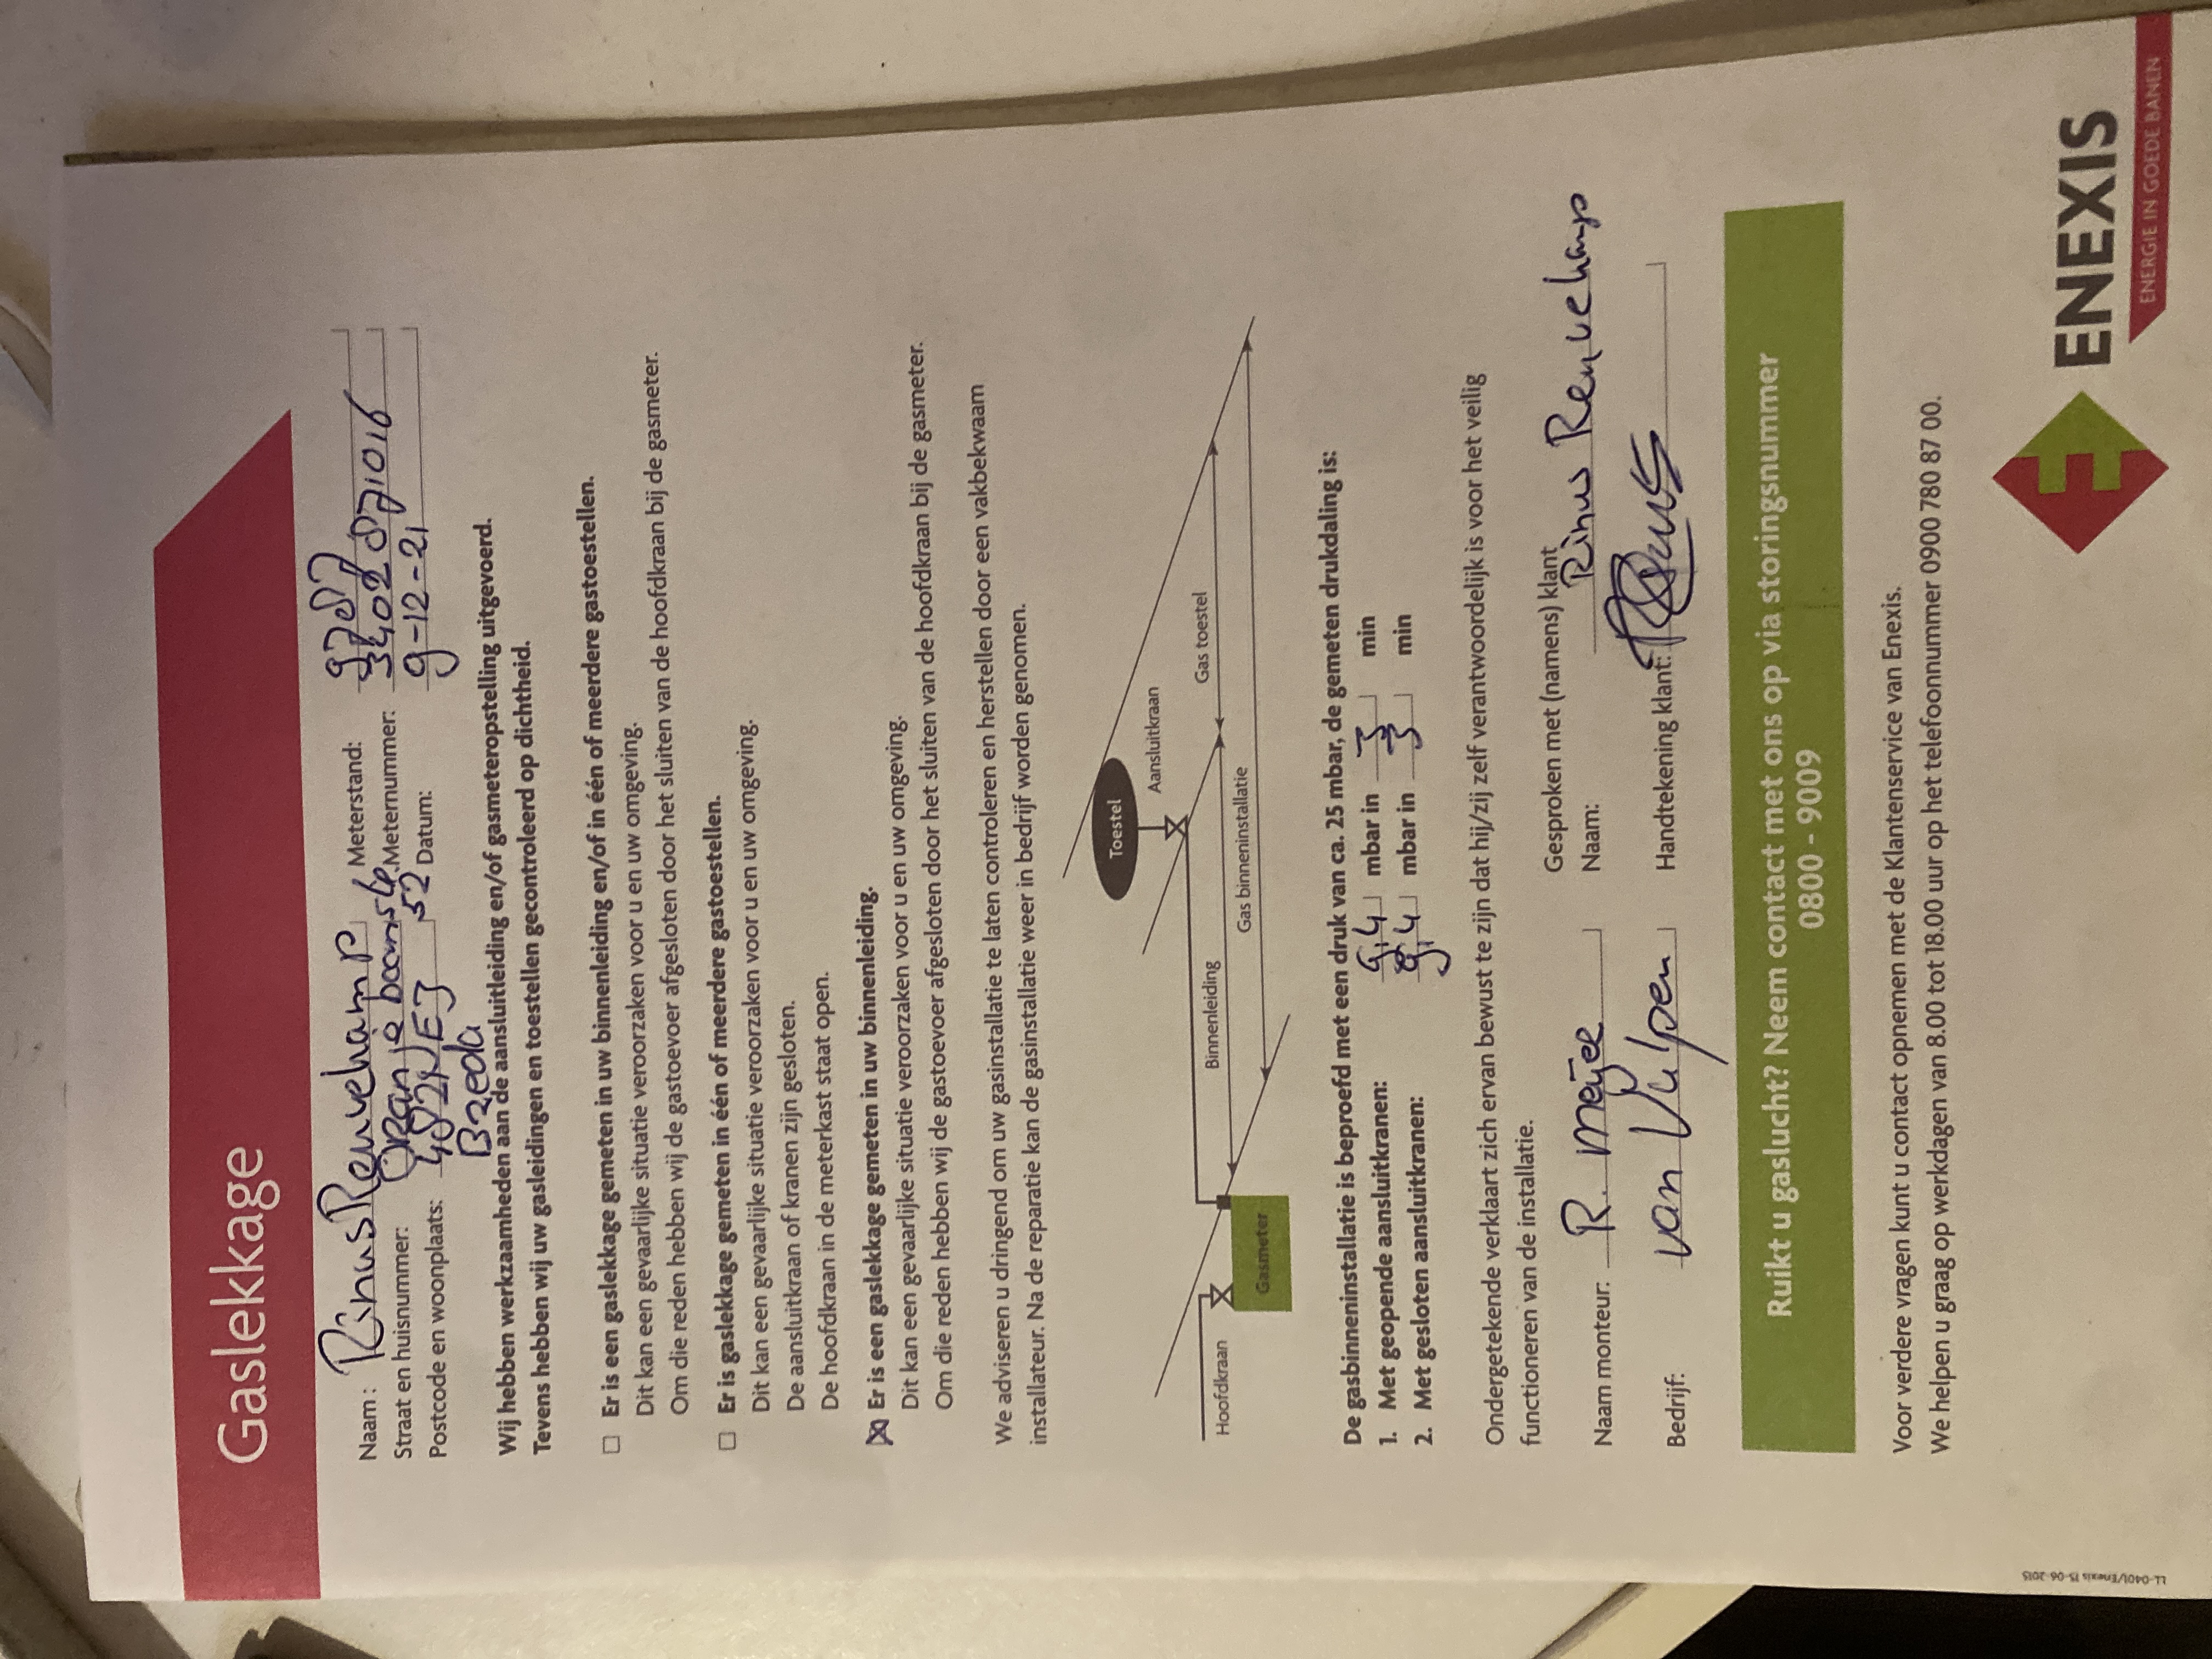 Gaslekkage
Naam : Rinus Renvehamp Meterstand: 9787
Straat en huisnummer: Oranjeboomstr. 52 Meternummer: 3402871016
Postcode en woonplaats: Datum: 9-12-21
Breda
Wij hebben werkzaamheden aan de aansluitleiding en/of gasmeteropstelling uitgevoerd.
Tevens hebben wij uw gasleidingen en toestellen gecontroleerd op dichtheid.
☐ Er is een gaslekkage gemeten in uw binnenleiding en/of in één of meerdere gastoestellen.
Dit kan een gevaarlijke situatie veroorzaken voor u en uw omgeving.
Om die reden hebben wij de gastoevoer afgesloten door het sluiten van de hoofdkraan bij de gasmeter.
☐ Er is gaslekkage gemeten in één of meerdere gastoestellen.
Dit kan een gevaarlijke situatie veroorzaken voor u en uw omgeving.
De aansluitkraan of kranen zijn gesloten.
De hoofdkraan in de meterkast staat open.
☒ Er is een gaslekkage gemeten in uw binnenleiding.
Dit kan een gevaarlijke situatie veroorzaken voor u en uw omgeving.
Om die reden hebben wij de gastoevoer afgesloten door het sluiten van de hoofdkraan bij de gasmeter.
We adviseren u dringend om uw gasinstallatie te laten controleren en herstellen door een vakbekwaam
installateur. Na de reparatie kan de gasinstallatie weer in bedrijf worden genomen.
Toestel
Aansluitkraan
Hoofdkraan
Binnenleiding
Gas toestel
Gas binneninstallatie
Gasmeter
De gasbinneninstallatie is beproefd met een druk van ca. 25 mbar, de gemeten drukdaling is:
1. Met geopende aansluitkranen: 9,4 mbar in 3 min
2. Met gesloten aansluitkranen: 9,4 mbar in 3 min
Ondergetekende verklaart zich ervan bewust te zijn dat hij/zij zelf verantwoordelijk is voor het veilig
functioneren van de installatie.
Gesproken met (namens) klant
Naam monteur: R. Meijer Naam: Rinus Renvehamp
Bedrijf: van Vulpen Handtekening klant:
Ruikt u gaslucht? Neem contact met ons op via storingsnummer
0800 - 9009
Voor verdere vragen kunt u contact opnemen met de Klantenservice van Enexis.
We helpen u graag op werkdagen van 8.00 tot 18.00 uur op het telefoonnummer 0900 780 87 00.
LL-0401/Enexis 15-06-2015
ENEXIS
ENERGIE IN GOEDE BANEN